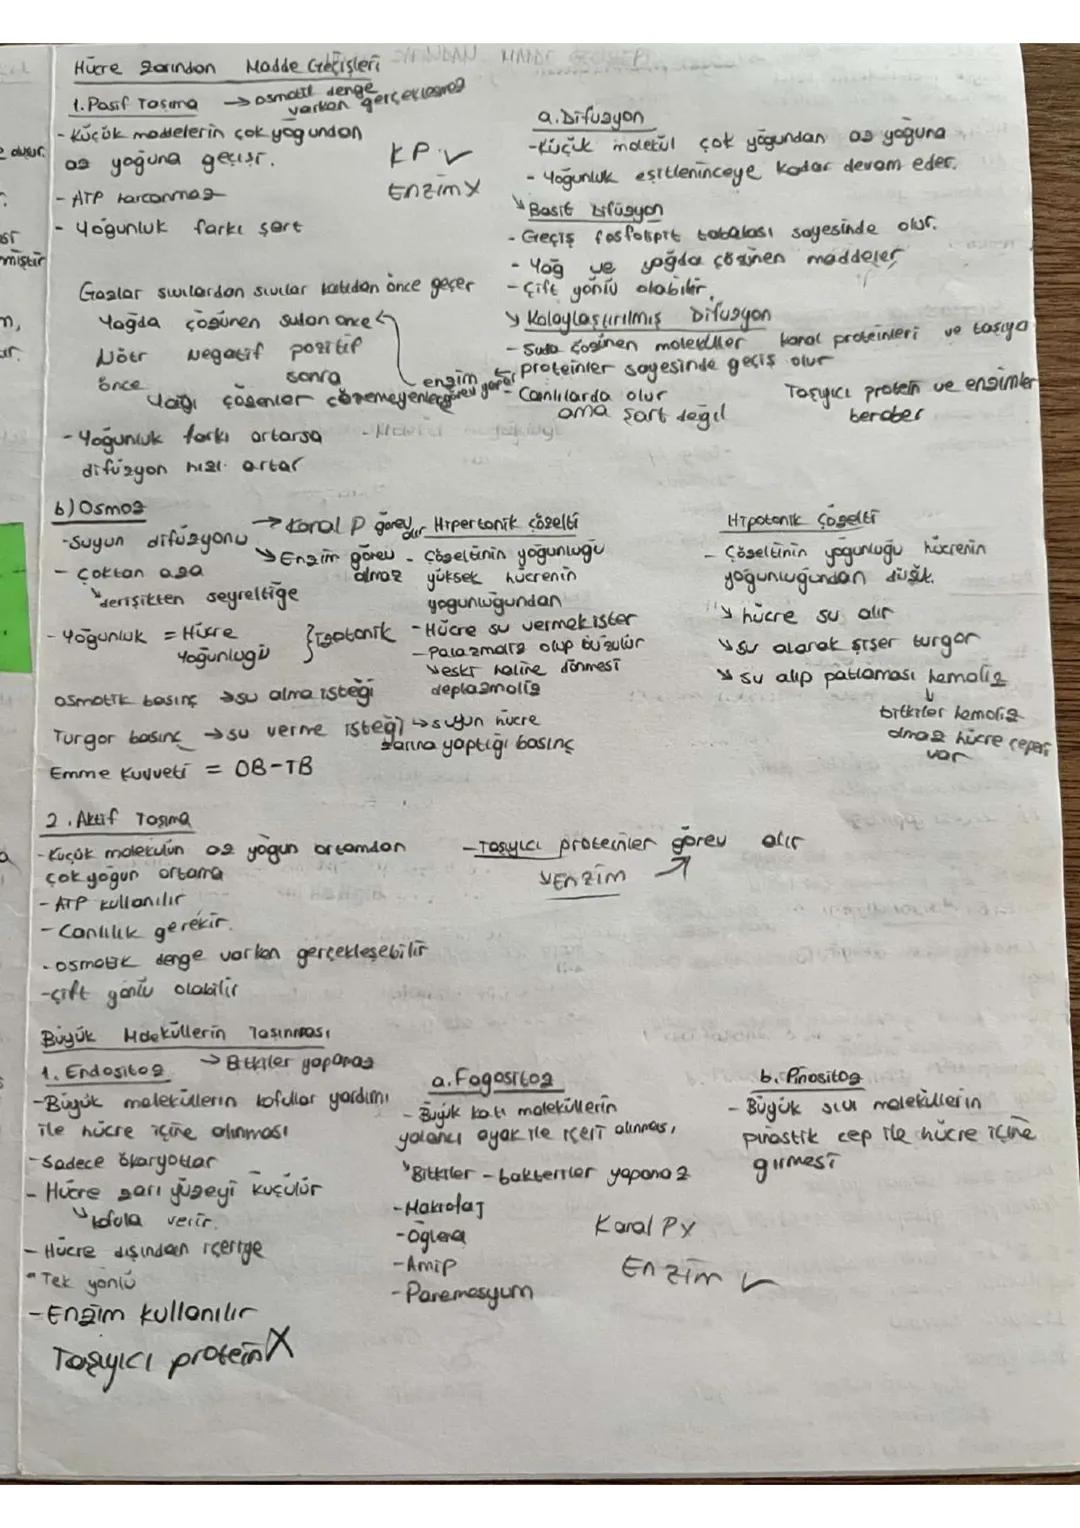 Hücre zarından Madde Geçişleri
1. Pasif Taşıma → osmotik denge
varken gerçekleşmez
- Küçük maddelerin çok yoğundan
az yoğuna geçişi.
KP ✓
Enzim X
- ATP harcanmaz
- Yoğunluk farkı şart
a. Difüzyon
- Küçük molekül çok yoğundan az yoğuna
- Yoğunluk eşitleninceye kadar devam eder.
↳ Basit Difüzyon
- Geçiş fosfolipit tabakası sayesinde olur.
- Yağ ve yağda çözünen maddeler
- Çift yönlü olabilir.
Gazlar sıvılardan sıvılar katıdan önce geçer
Yağda çözünen sudan önce
Nötr Negatif pozitif
önce sonra
Yağı çözenler çözemeyenlerden
enzim görev yapar
↳ Kolaylaştırılmış Difüzyon
- Suda çözünen moleküller kanal proteinleri ve taşıyıcı
proteinler sayesinde geçiş olur
- Canlılarda olur
ama şart değil
Taşıyıcı protein ve enzimler
beraber
- Yoğunluk farkı artarsa
difüzyon hızı artar
b) Osmoz
- Suyun difüzyonu
→ Kanal P görev alır
↳ Enzim görev
almaz
- Çoktan aza
↳ derişikten seyreltiğe
- Yoğunluk = Hücre
Yoğunluğu } İzotonik
Hipertonik çözelti
- Çözeltinin yoğunluğu
yüksek hücrenin
yoğunluğundan
- Hücre su vermek ister
- Palazmoliz olup büzülür
↳ eski haline dönmesi
deplazmoliz
Hipotonik Çözelti
- Çözeltinin yoğunluğu hücrenin
yoğunluğundan düşük.
↳ hücre su alır
↳ su alarak şişer turgor
↳ su alıp patlaması hemoliz
↓
bitkiler hemoliz
olmaz hücre çeperi
var
Osmotik basınç → su alma isteği
Turgor basınç → su verme isteği → suyun hücre
zarına yaptığı basınç
Emme Kuvveti = OB-TB
2. Aktif Taşıma
- Küçük molekülün az yoğun ortamdan
çok yoğun ortama
- ATP kullanılır
- Canlılık gerekir.
- Osmotik denge varken gerçekleşebilir
- çift yönlü olabilir
- Taşıyıcı proteinler görev alır
↳ Enzim ↗
Büyük Moleküllerin Taşınması
1. Endositoz → Bitkiler yapamaz
- Büyük moleküllerin kofullar yardımı
ile hücre içine alınması
- Sadece ökaryotlar
- Hücre zarı yüzeyi küçülür
↳ kofula verir.
- Hücre dışından içeriye
- Tek yönlü
- Enzim kullanılır
Taşıyıcı protein X
a. Fagositoz
- Büyük katı moleküllerin
yalancı ayak ile içeri alınması
↳ Bitkiler - bakteriler yapamaz
- Makrofaj
- Öglena
- Amip
- Paremesyum
Kanal P X
Enzim ✓
b. Pinositoz
- Büyük sıvı moleküllerin
pinositik cep ile hücre içine
girmesi